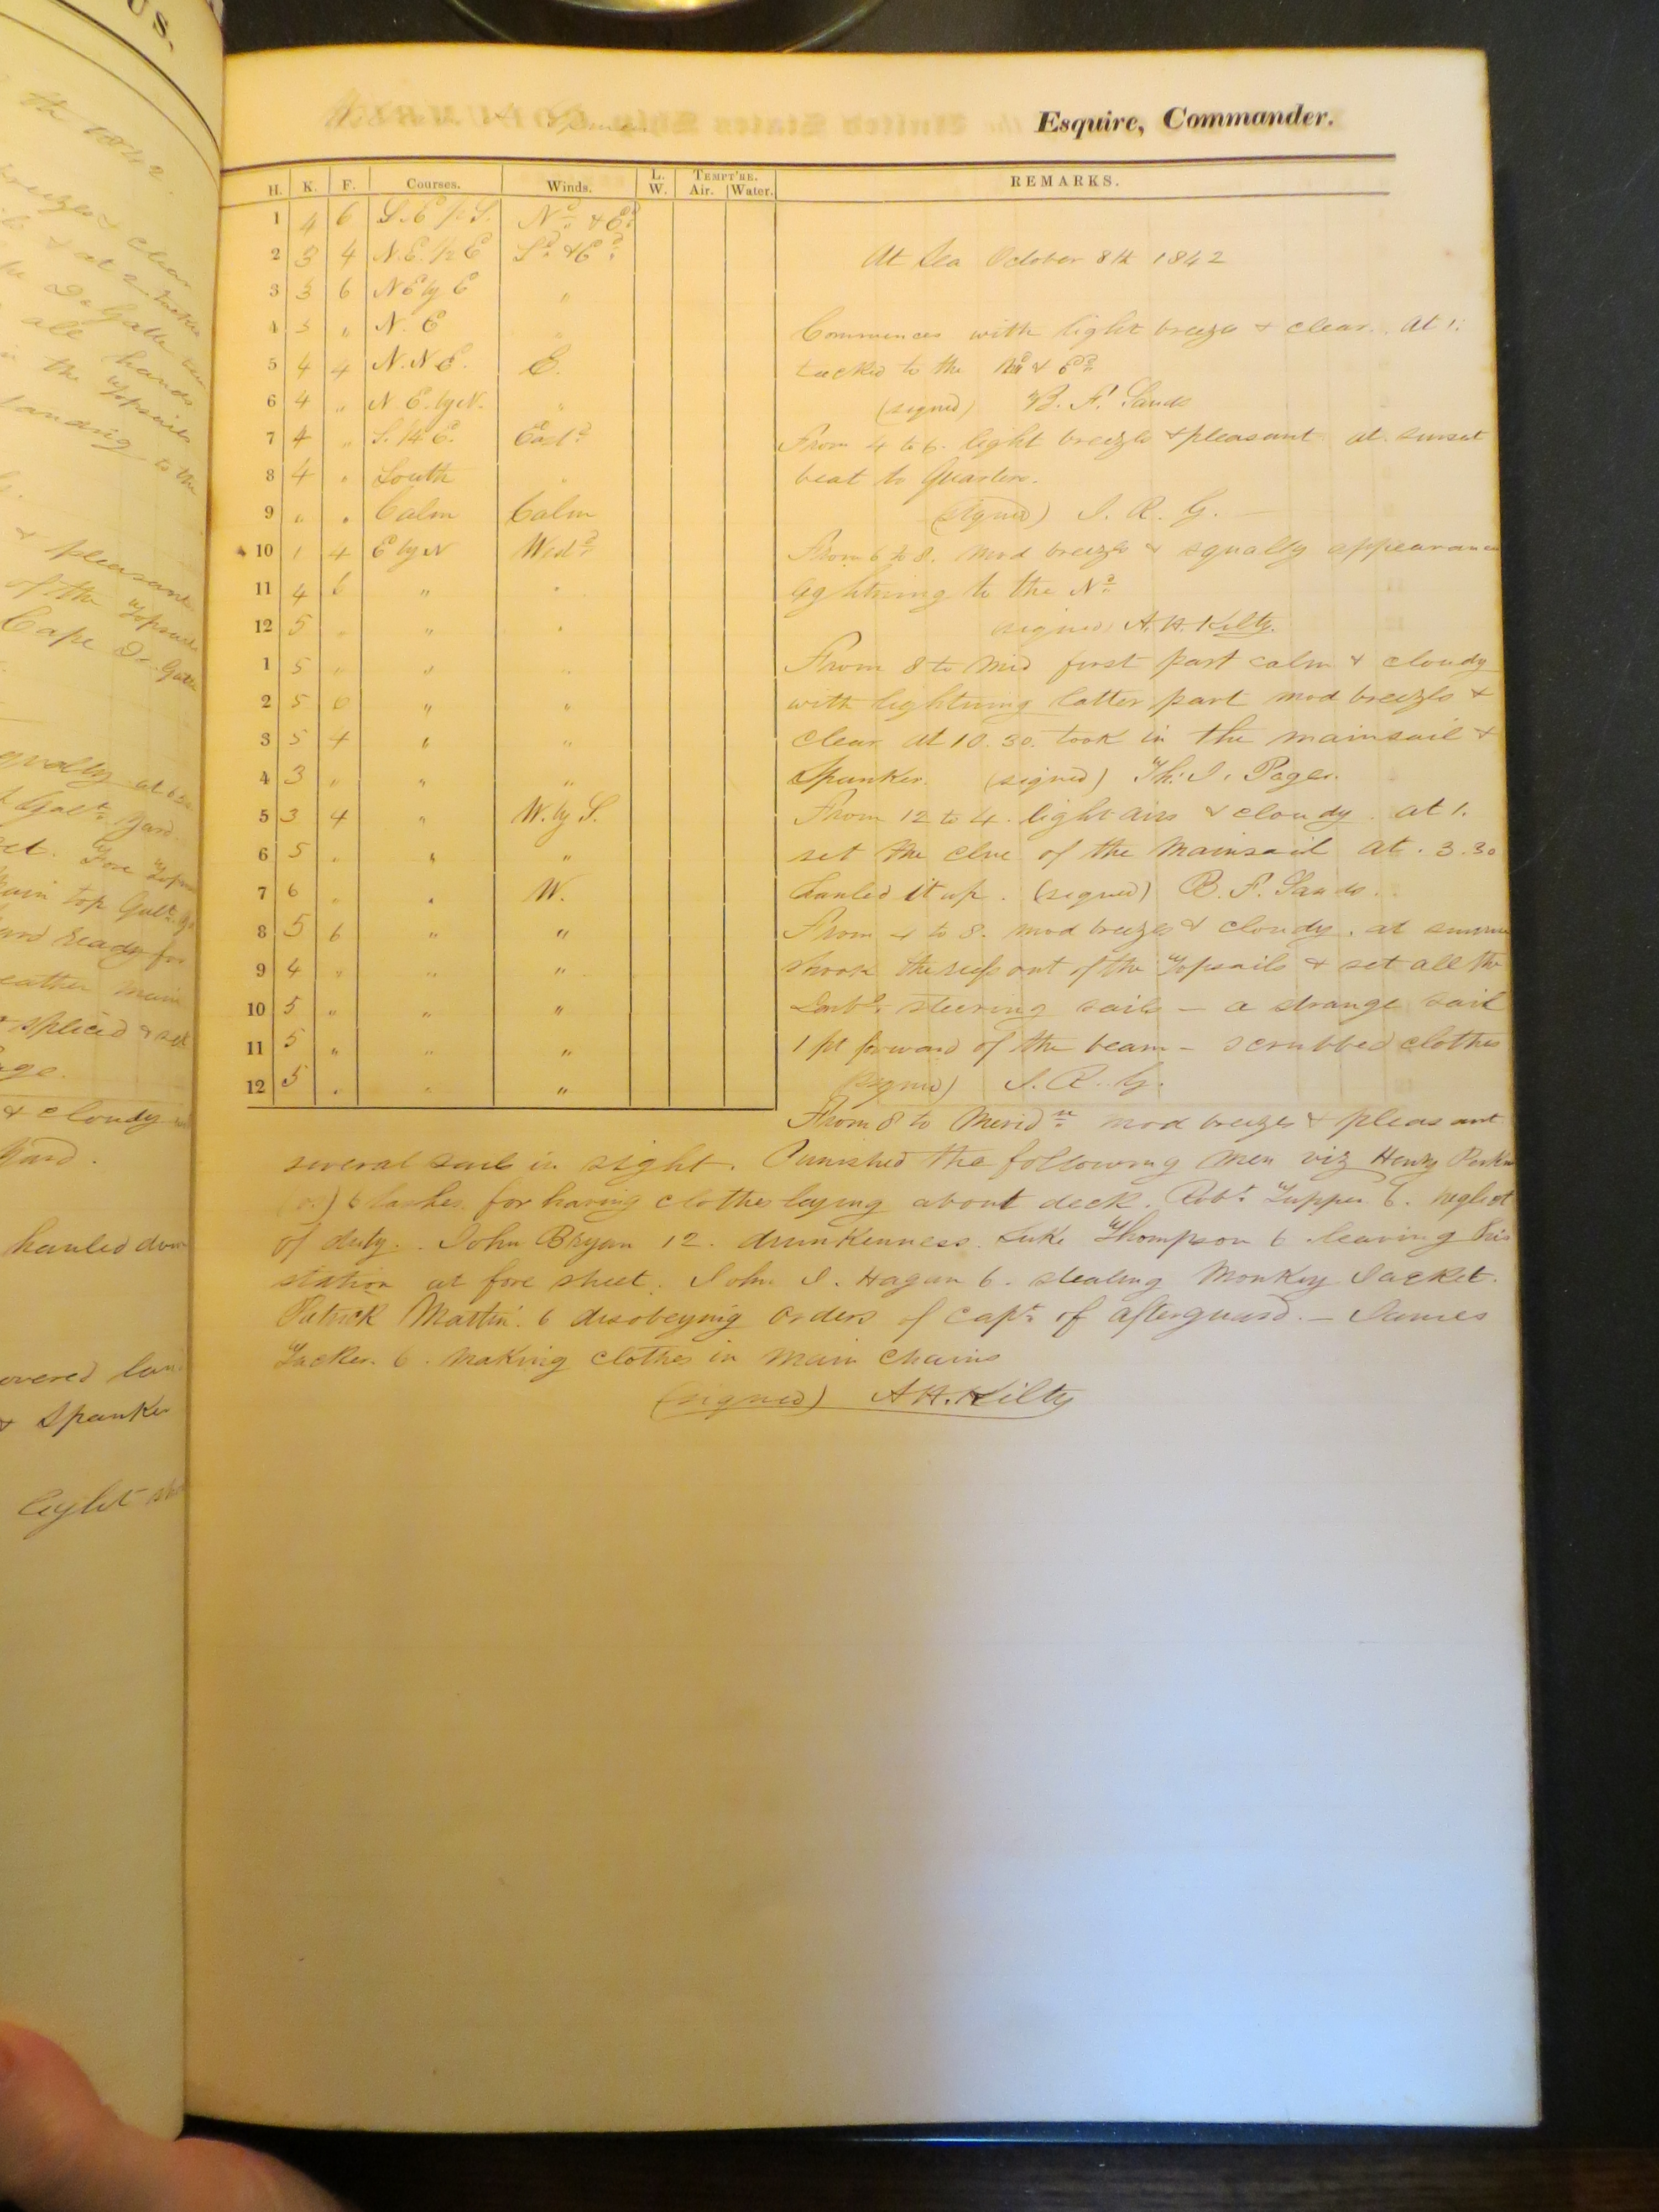 Esquire, Commander.
H. K. F. Courses. Winds. L. W. TEMPT'RE. Air. Water. REMARKS.
1 4 6 S.E 1/2 S. Nd & Ed
2 3 4 N.E. 1/2 E Sd & Ed
At Sea October 8th 1842
3 3 6 N E by E "
4 3 " N. E "
Commences with light breezes & clear. At 1.
5 4 4 N.N.E. E.
tacked to the Nd & Ed
6 4 " N. E. by N. "
(signed) B. F. Sands
7 4 " East d
From 4 to 6. light breezes & pleasant at sunset
8 4 " South "
beat to Quarters.
9 " " Calm Calm
(signed) J. R. G.
10 1 4 E by N West d
From 6 to 8. mod breezes & squally appearance
11 4 6 " "
lightning to the Nd
12 5 " " "
signed A. H. Kilty.
1 5 " " "
From 8 to Mid first part calm & cloudy
2 5 6 " "
with lightning latter part mod breezes &
3 5 4 " "
clear at 10.30. took in the mainsail &
4 3 " " "
Spanker. (signed) Th: J. Page.
5 3 4 " W. by S.
From 12 to 4. light airs & cloudy. at 1.
6 5 " " "
set the clue of the mainsail at. 3.30
7 6 " " W.
hauled it up. (signed) B. F. Sands.
8 5 6 " "
From 4 to 8. mod breezes & cloudy. at sunrise
9 4 " " "
shook the reefs out of the Topsails & set all the
10 5 " " "
steering sails - a strange sail
11 5 " " "
1 pt forward of the beam - scrubbed clothes
12 5 " " "
(signed) J. R. G.
From 8 to Merid n mod breezes & pleasant
several sails in sight. Punished the following men viz Henry
6 lashes for having clothes laying about deck. Robt Tupper 6. neglect
of duty. John Bryan 12. drunkenness. Luke Thompson 6 leaving his
station at fore sheet. John J. Hagan 6. stealing Monkey Jacket.
Patrick Martin. 6 disobeying orders of capt of afterguard. - James
Tucker. 6. making clothes in main chains
(signed) A H. Kilty